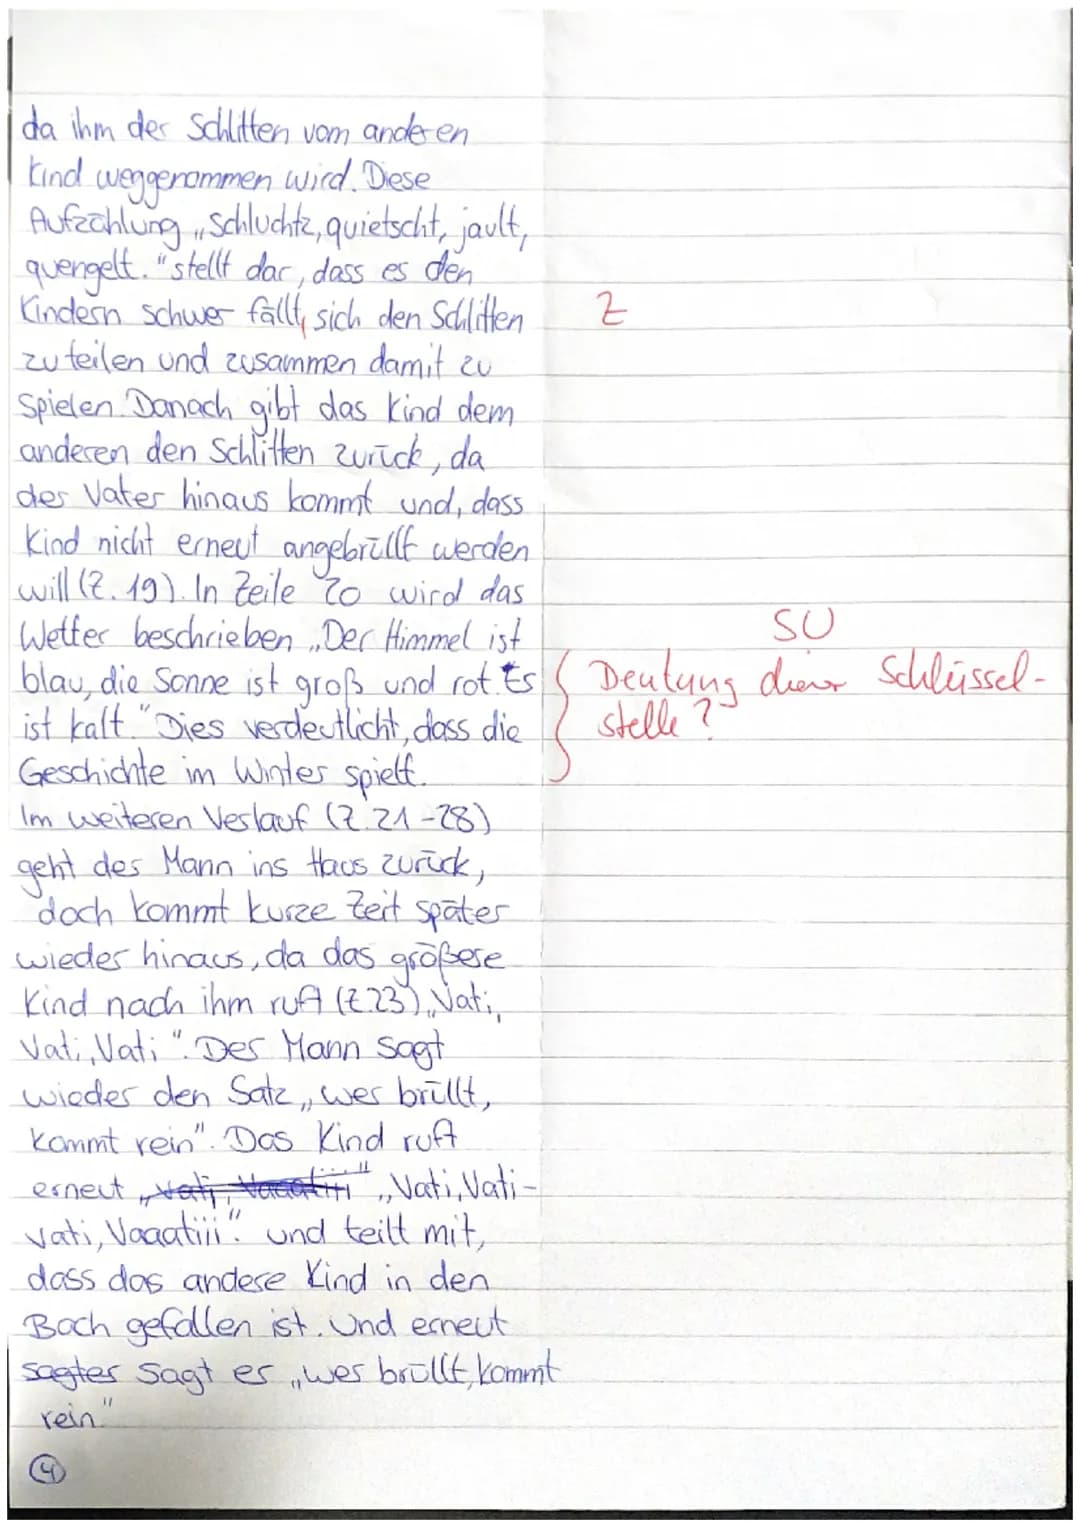 da ihm der Schlitten vom anderen
Kind weggenommen wird. Diese
Aufzählung „Schluchtz, quietscht, jault,
quengelt." stellt dar, dass es den
Kindern schwer fällt, sich den Schlitten
Z
zu teilen und zusammen damit zu
Spielen. Danach gibt das Kind dem
anderen den Schlitten zurück, da
der Vater hinaus kommt und, dass
Kind nicht erneut angebrüllt werden
will (Z. 19). In Zeile 20 wird das
Wetter beschrieben „Der Himmel ist
SU
blau, die Sonne ist groß und rot. Es
Deutung dieser Schlüssel-
ist kalt." Dies verdeutlicht, dass die
stelle?
Geschichte im Winter spielt.
Im weiteren Verlauf (Z. 21-28)
geht der Mann ins Haus zurück,
doch kommt kurze Zeit später
wieder hinaus, da das größere
Kind nach ihm ruft (Z.23) „Vati,
Vati, Vati". Der Mann sagt
wieder den Satz „wer brüllt,
kommt rein". Das Kind ruft
erneut „Vati, Vaaatiii" „Vati, Vati-
vati, Vaaatiii." und teilt mit,
dass das andere Kind in den
Bach gefallen ist. Und erneut
sagter Sagt er „wer brüllt, kommt
rein."
4